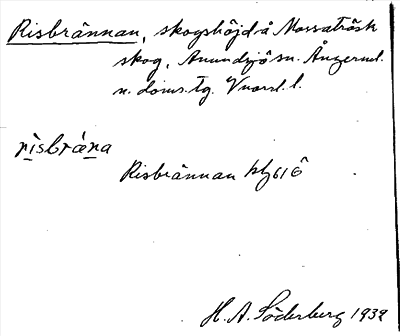 Risbrännan, skogshöjd å Mossaträsk
skog, Anundsjö sn. Ångerml.
n. doms. tg. Vnorrl. l.
risbräna
Risbrännan hbj61ö
H. A. Söderberg 1939